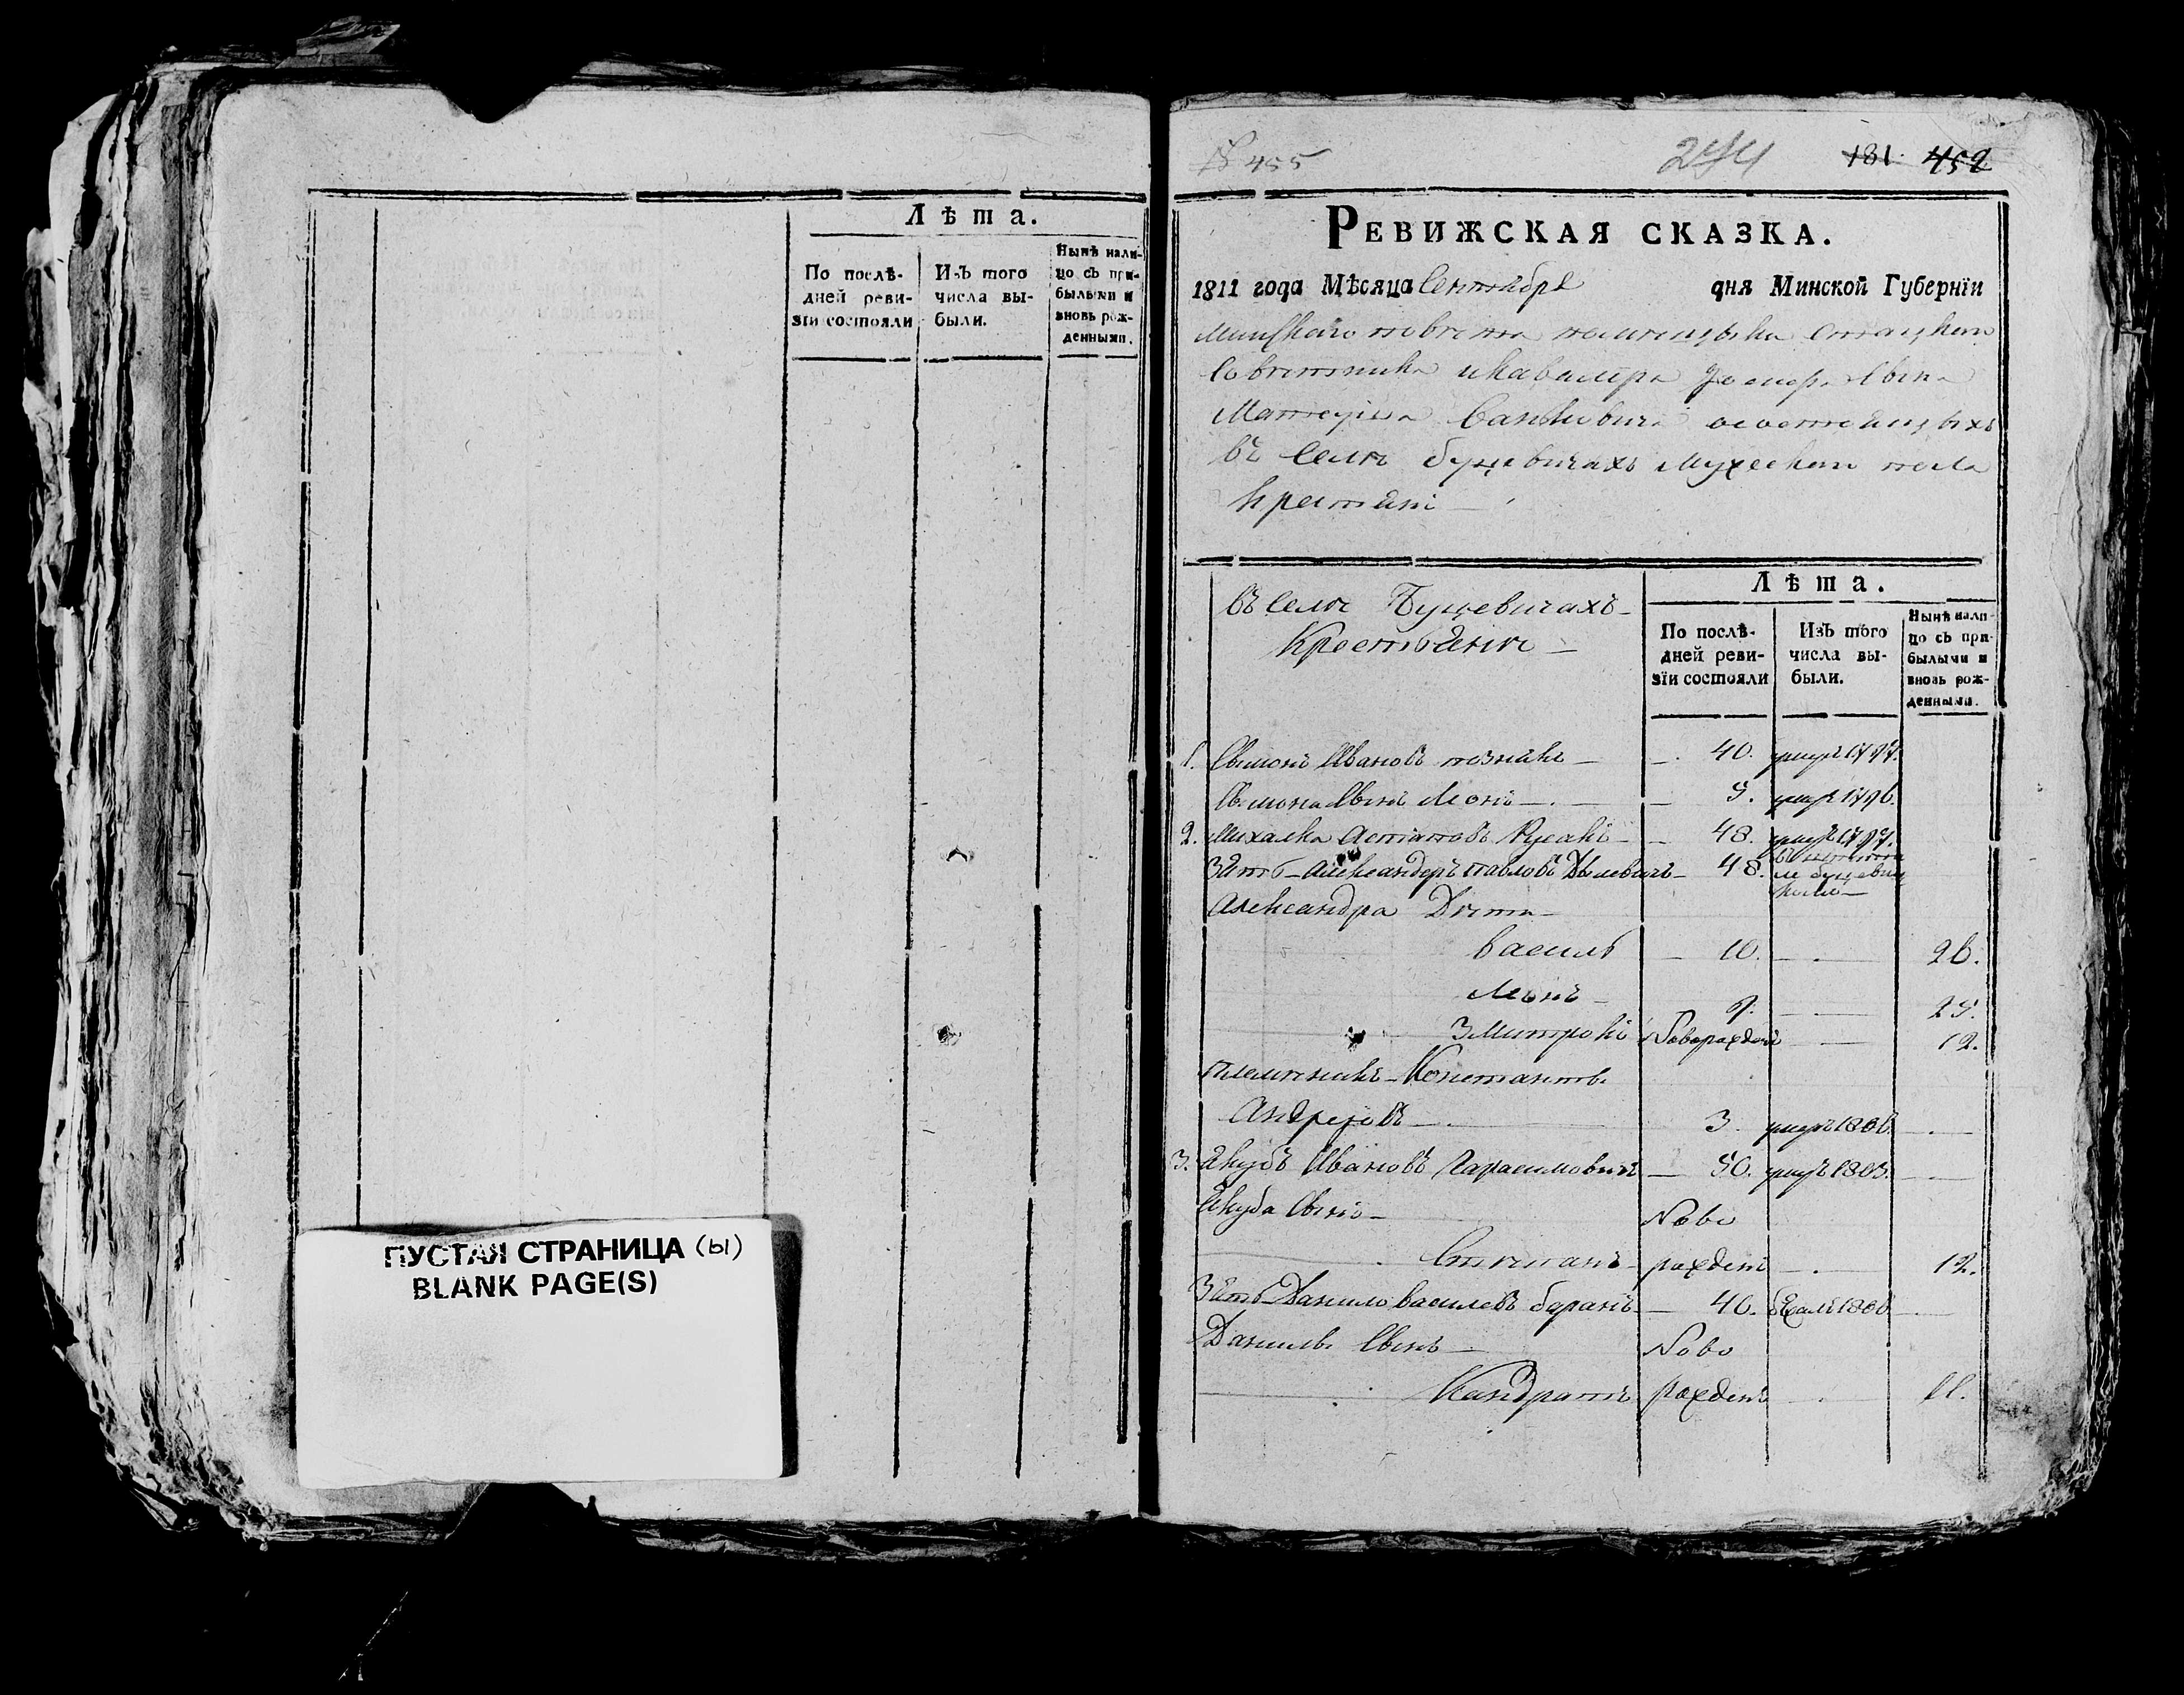 Лѣта.
По послѣ-
дней реви-
зїи состояли
Изъ того
числа вы-
были.
Нынѣ нали-
цо съ при-
былыми и
вновь рож-
денными.
ПУСТАЯ СТРАНИЦА (ы)
BLANK PAGE(S)
№ 455
244 181 452
РЕВИЖСКАЯ СКАЗКА.
1811 года Мѣсяца Сентября дня Минской Губернїи
Минскаго повета помещика статскаго
Советника и кавалера Сына
Матеуша Ваньковича
въ Селе Буцевичахъ
крестьянъ
въ Селе Буцевичахъ
Крестьяне
Лѣта.
По послѣ-
дней реви-
зїи состояли
Изъ того
числа вы-
были.
Нынѣ нали-
цо съ при-
былыми и
вновь рож-
денными.
1. Сымонъ Ивановъ познякъ 40. умеръ 1797.
Сымона Сынъ Леонъ 5. умеръ 1796.
2. Михалка Астаповъ Русакъ 48. умеръ 1797.
Зять Александеръ павловъ 48.
Александра Дети
василь 10. 26.
Леонъ 9. 25.
Змитрокъ Новорожденъ 12.
племеникъ Константы
Андреювъ 3. умеръ 1806.
3. Якубъ Ивановъ Гарасимовичъ 50. умеръ 1803.
Якуба Сынъ Ново
Степанъ рожденъ 12.
Зять Данило василевъ баранъ 40. бежалъ 1806.
Данилы Сынъ Ново
Кандратъ рожденъ 11.